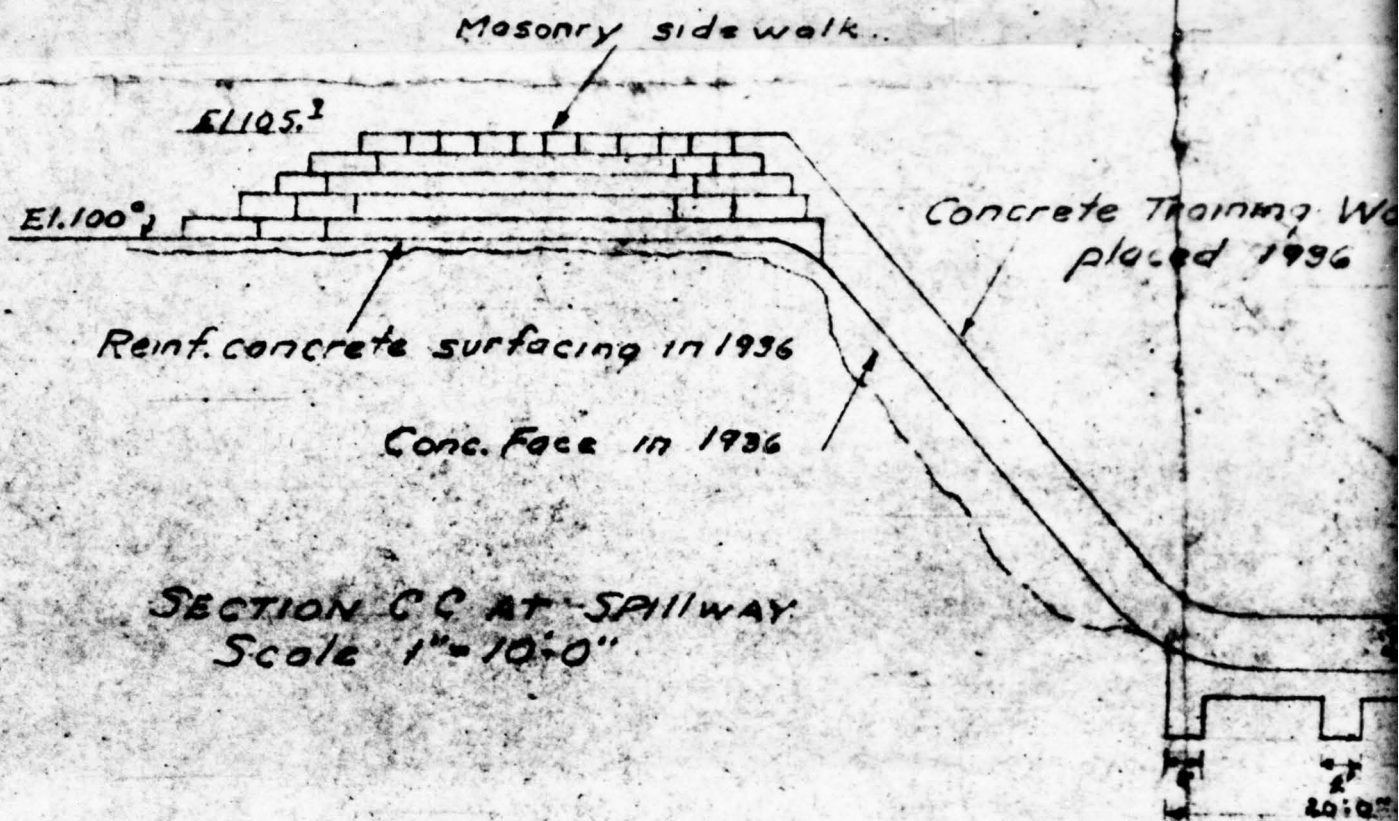 Masonry sidewalk
El.105.1
El.100°
Concrete Training
placed 1936
Reinf. concrete surfacing in 1936
Conc. Face in 1936
SECTION CC AT SPILLWAY
Scale 1"=10'-0"
2'
20'-0"